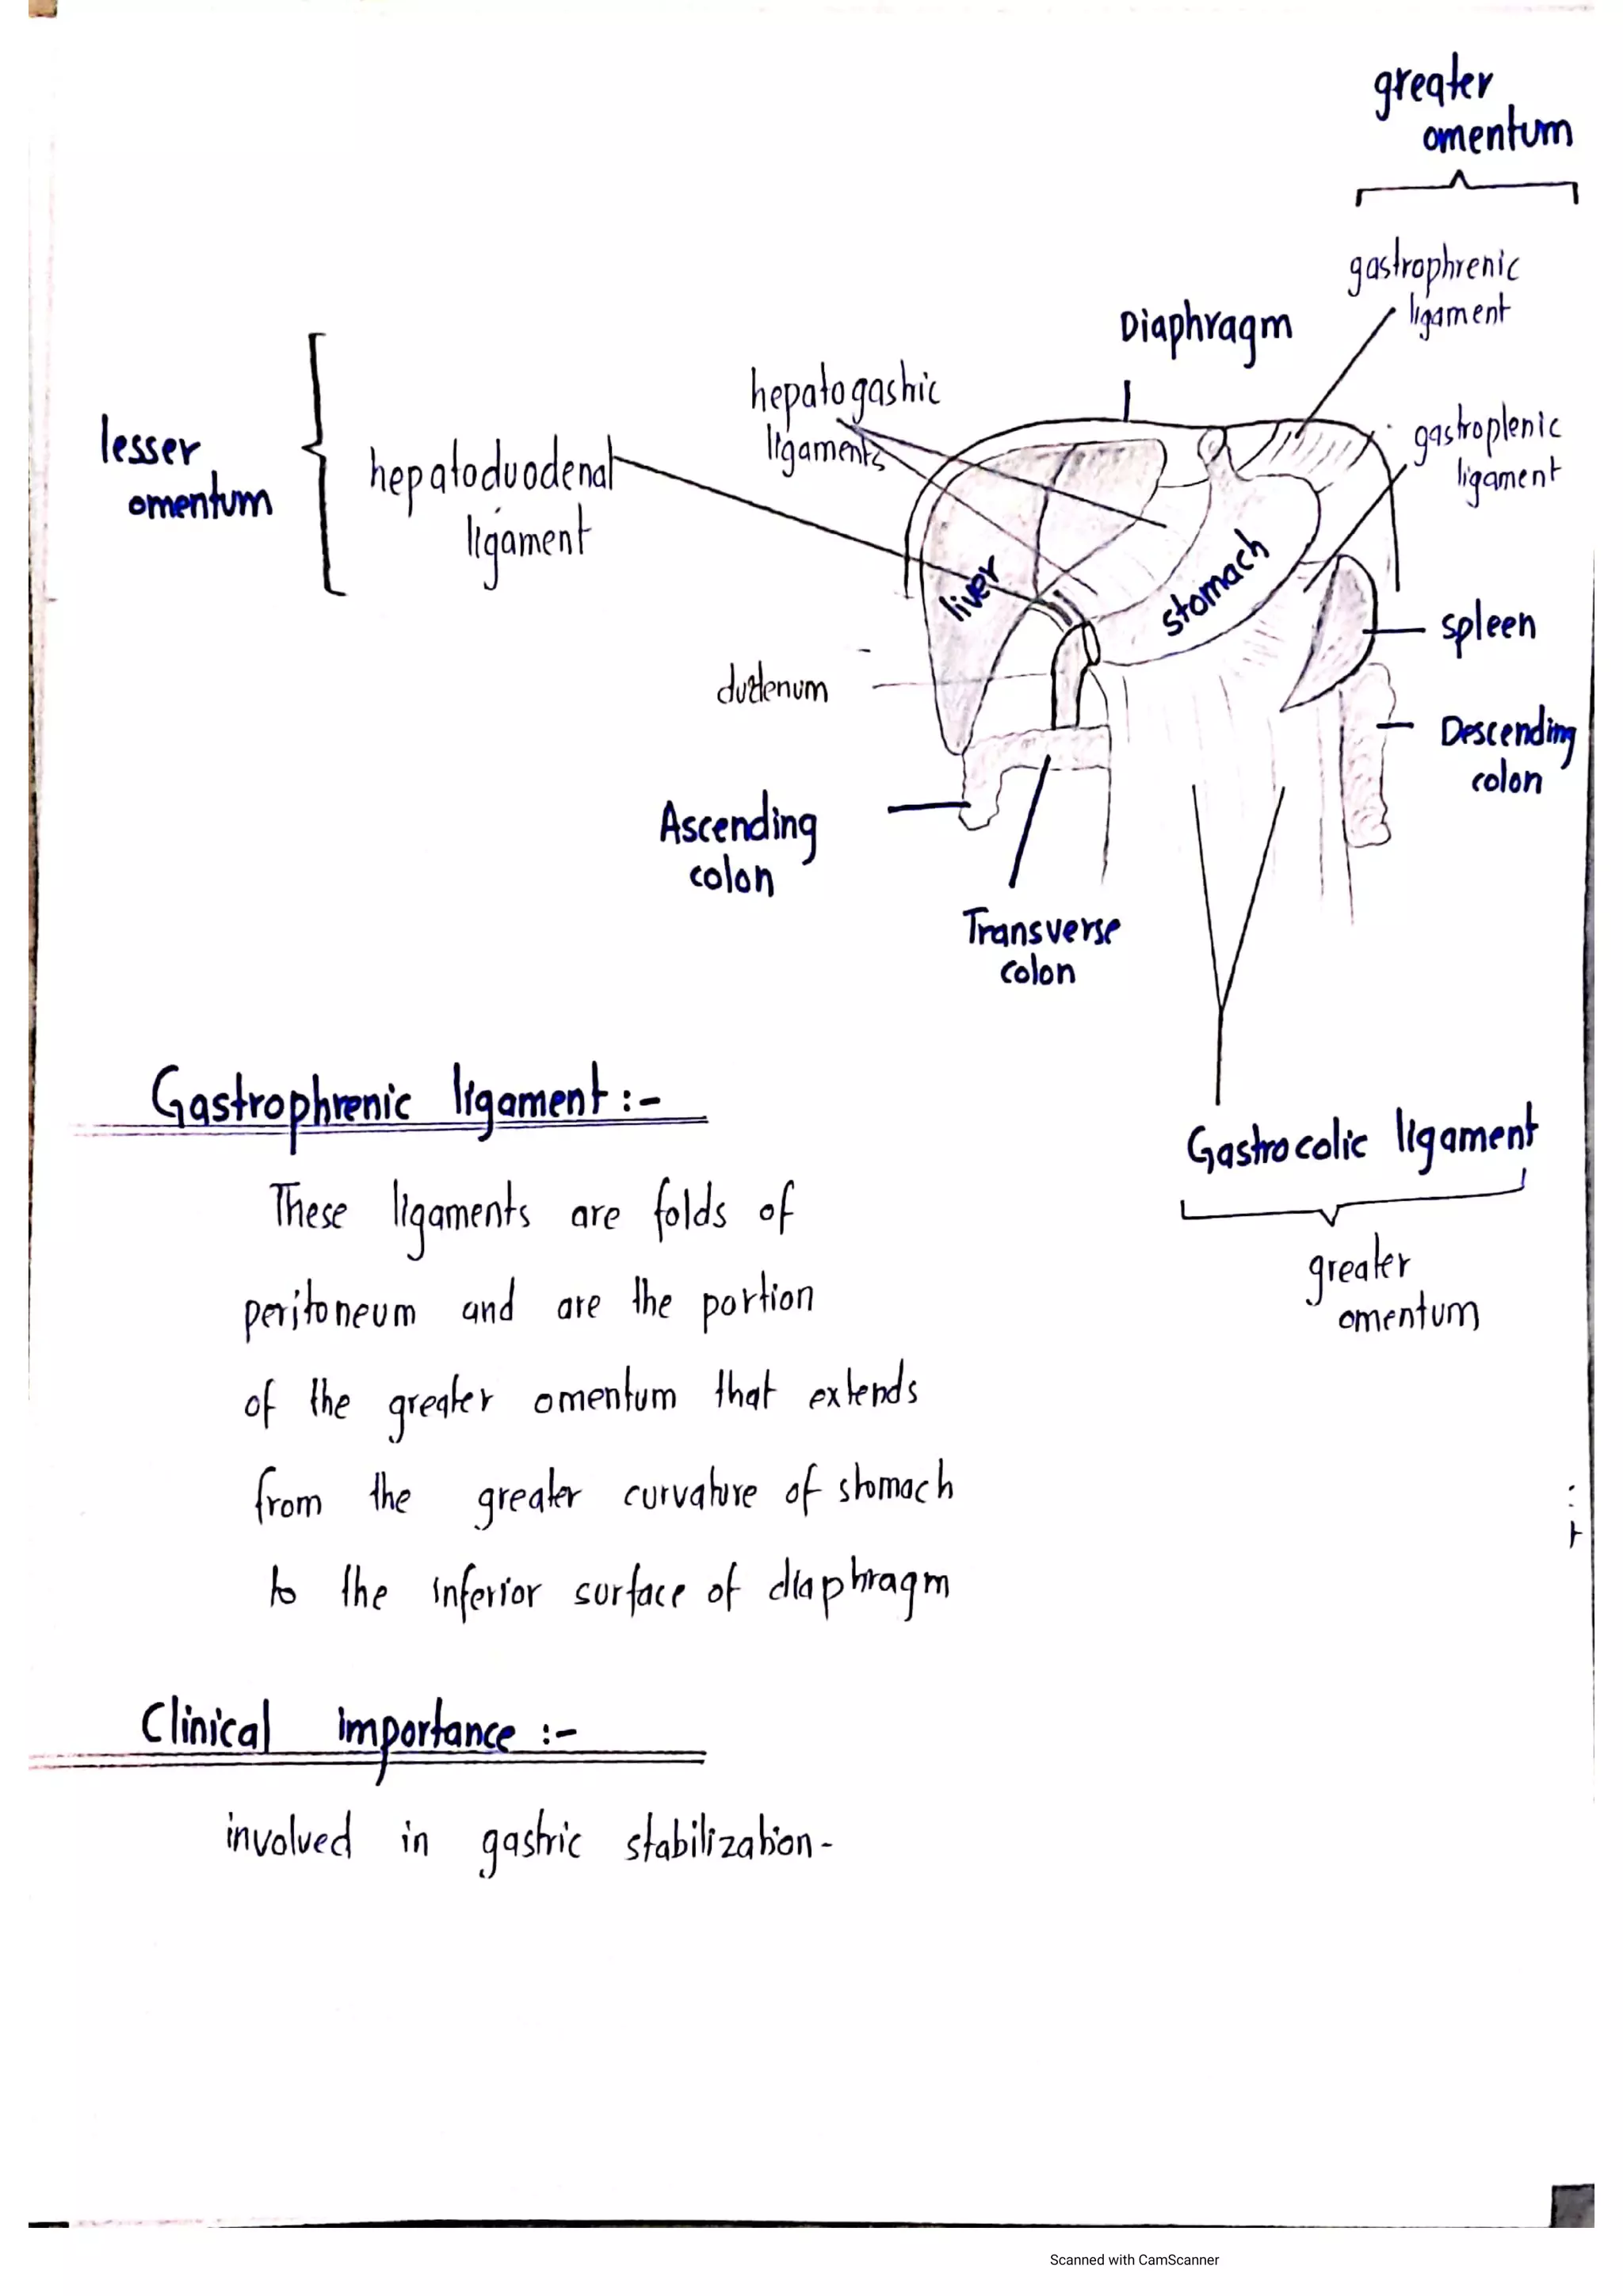 greater
omentum
gastrophrenic
ligament
Diaphragm
hepatogastric
ligaments
gastroplenic
ligament
lesser
omentum
hepatoduodenal
ligament
liver
stomach
spleen
Descending
colon
Ascending
colon
Transverse
colon
Gastrophrenic ligament :-
Gastrocolic ligament
These ligaments are folds of
greater
omentum
peritoneum and are the portion
of the greater omentum that extends
from the greater curvature of stomach
to the inferior surface of diaphragm
Clinical importance :-
involved in gastric stabilization-
Scanned with CamScanner